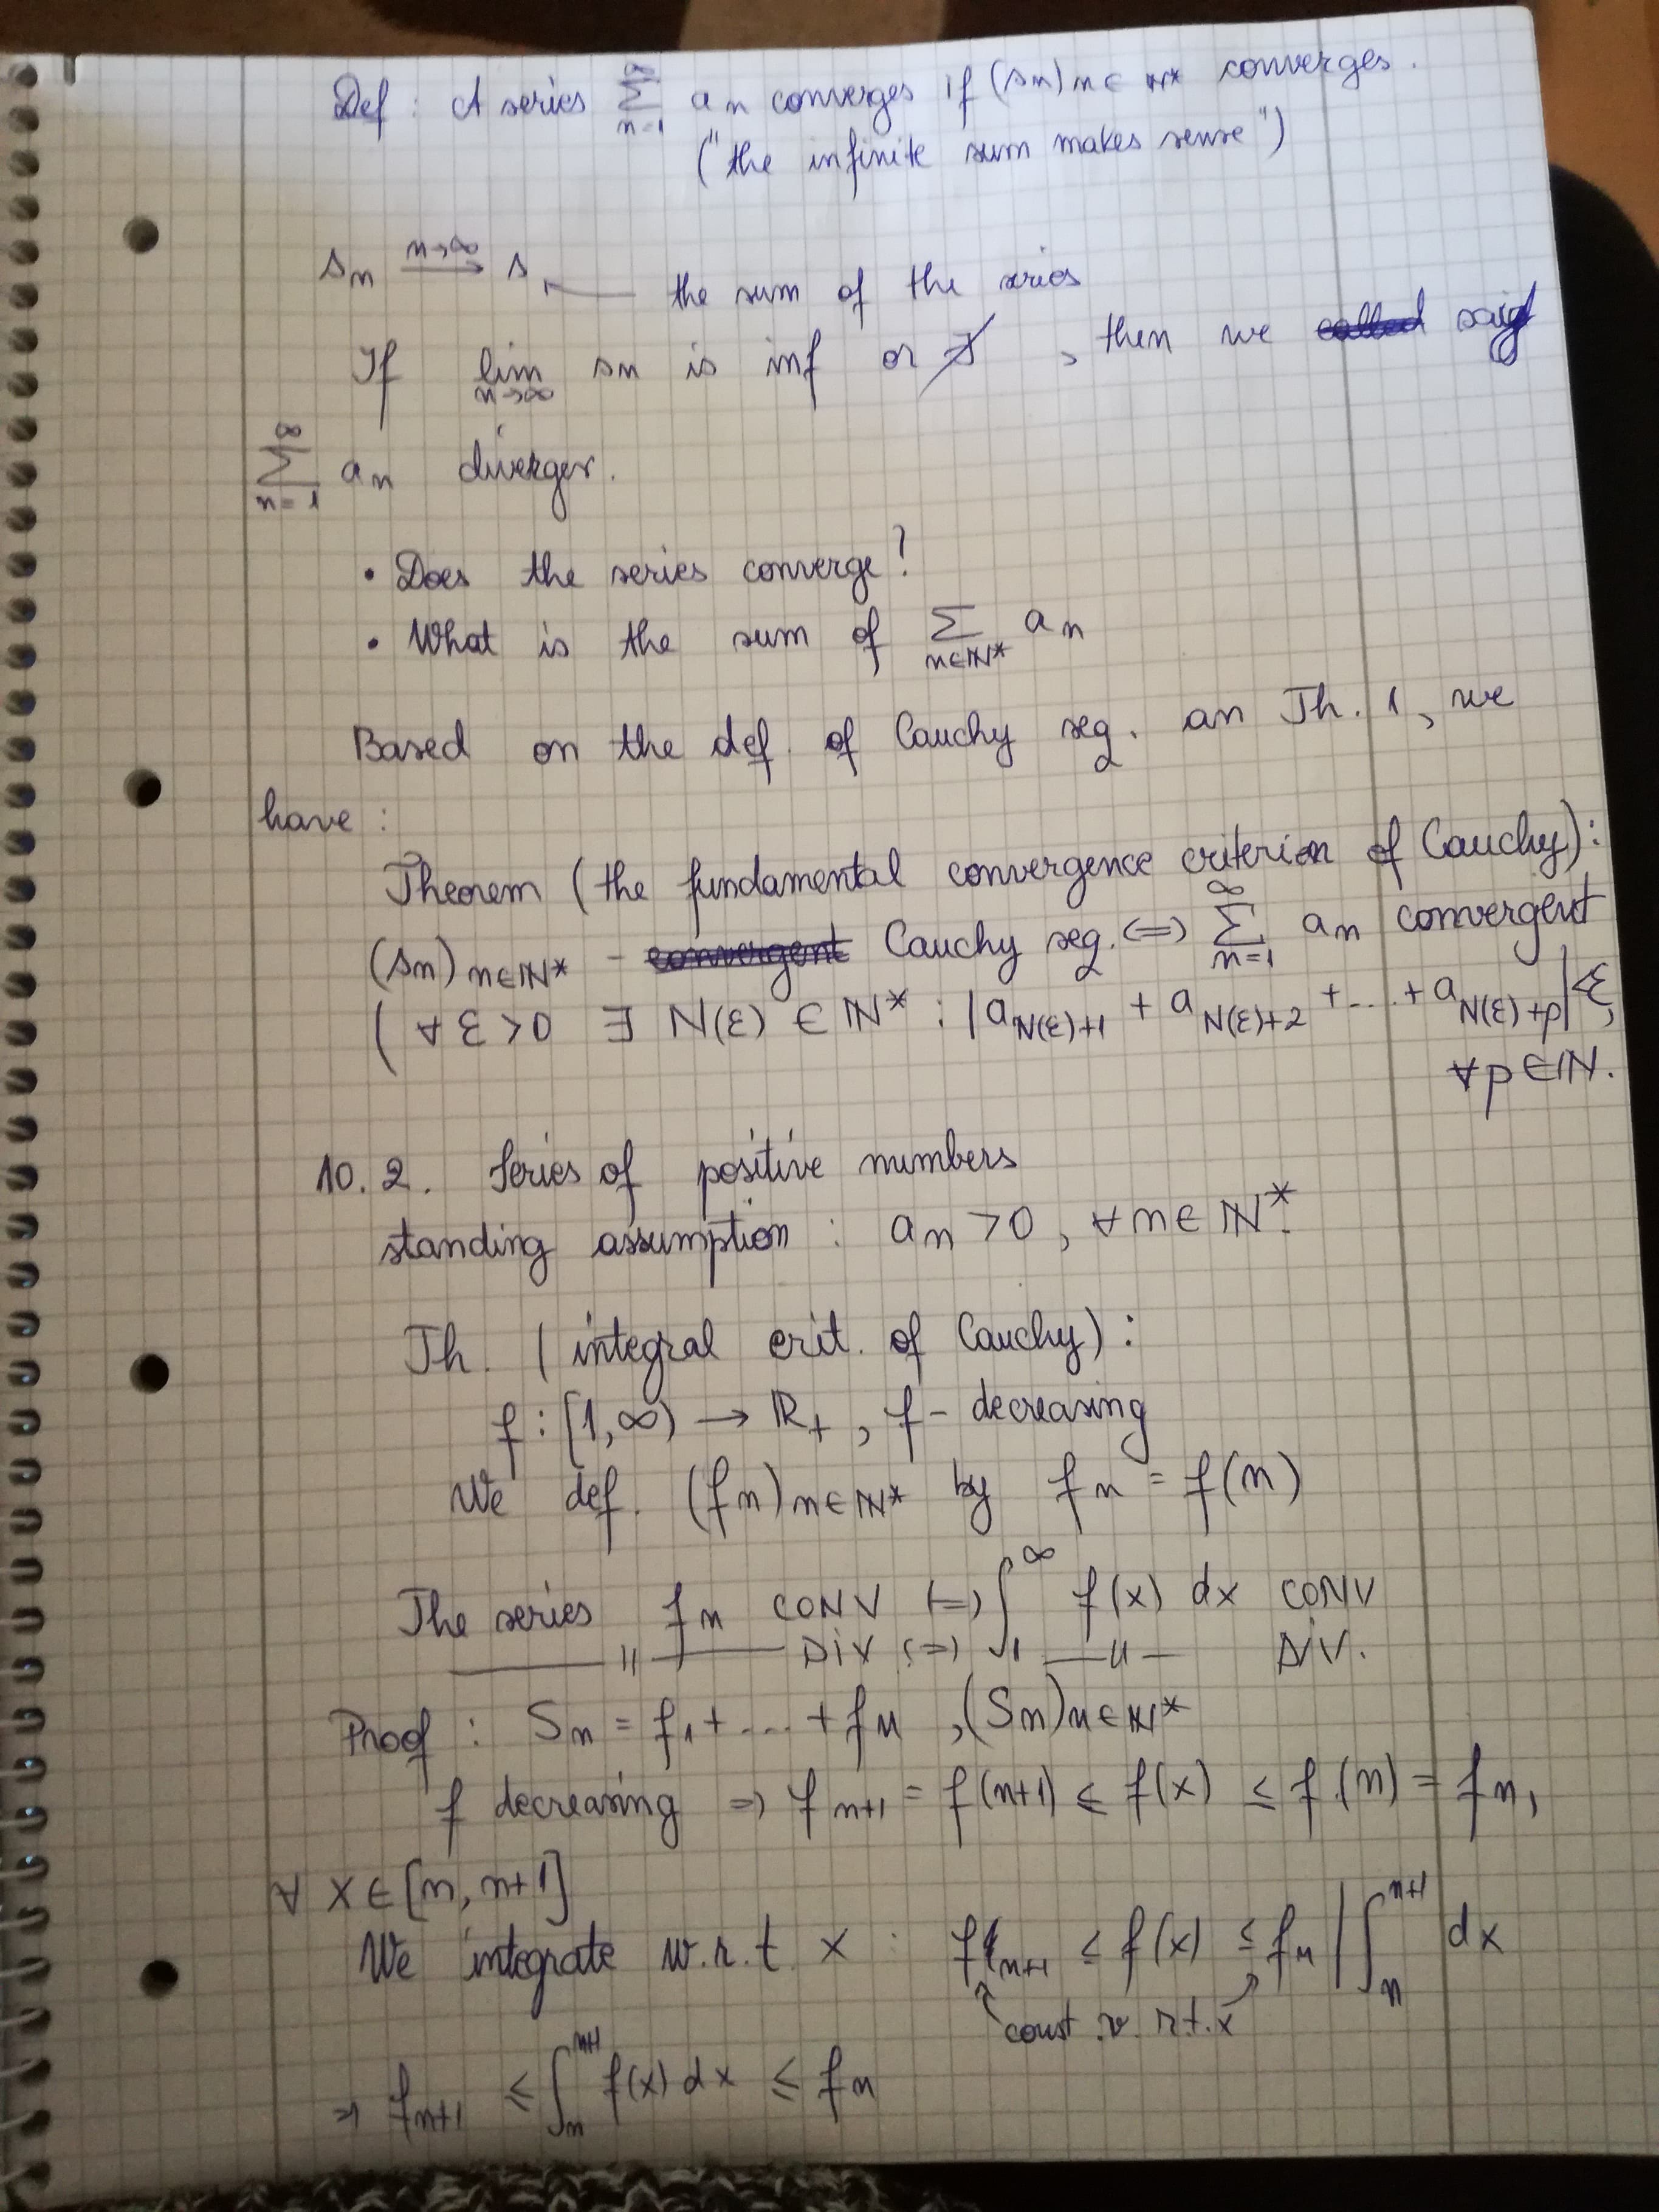 Def : A series ∑_{n=1}^{∞} a_n converges if (s_n)_{n∈ℕ*} converges.
("the infinite sum makes sense")
s_n →^{n→∞} s ← the sum of the series
If lim_{n→∞} s_n is inf or ∄ , then we ~~called~~ said
∑_{n=1}^{∞} a_n diverges.
• Does the series converge?
• What is the sum of ∑_{n∈ℕ*} a_n
Based on the def. of Cauchy seq. an Th. 1, we
have :
Theorem (the fundamental convergence criterion of Cauchy):
(s_n)_{n∈ℕ*} - ~~convergent~~ Cauchy seq. <=> ∑_{n=1}^{∞} a_n convergent
( ∀ ε > 0 ∃ N(ε) ∈ ℕ* : |a_{N(ε)+1} + a_{N(ε)+2} + ... + a_{N(ε)+p}| < ε,
∀ p ∈ ℕ.
10.2. Series of positive numbers
standing assumption : a_n > 0, ∀ n ∈ ℕ*.
Th. (integral crit. of Cauchy):
f : [1, ∞) → ℝ_+ , f - decreasing
We def. (f_n)_{n∈ℕ*} by f_n = f(n)
The series f_n CONV <=> ∫_1^∞ f(x) dx CONV
—— " —— DIV <=> — " — DIV.
Proof : S_n = f_1 + ... + f_n , (S_n)_{n∈ℕ*}
f decreasing => f_{n+1} = f(n+1) ≤ f(x) ≤ f(n) = f_n ,
∀ x ∈ [n, n+1]
We integrate w.r.t. x : f_{n+1} ≤ f(x) ≤ f_n | ∫_n^{n+1} dx
const. w. r. t. x
=> f_{n+1} ≤ ∫_n^{n+1} f(x) dx ≤ f_n